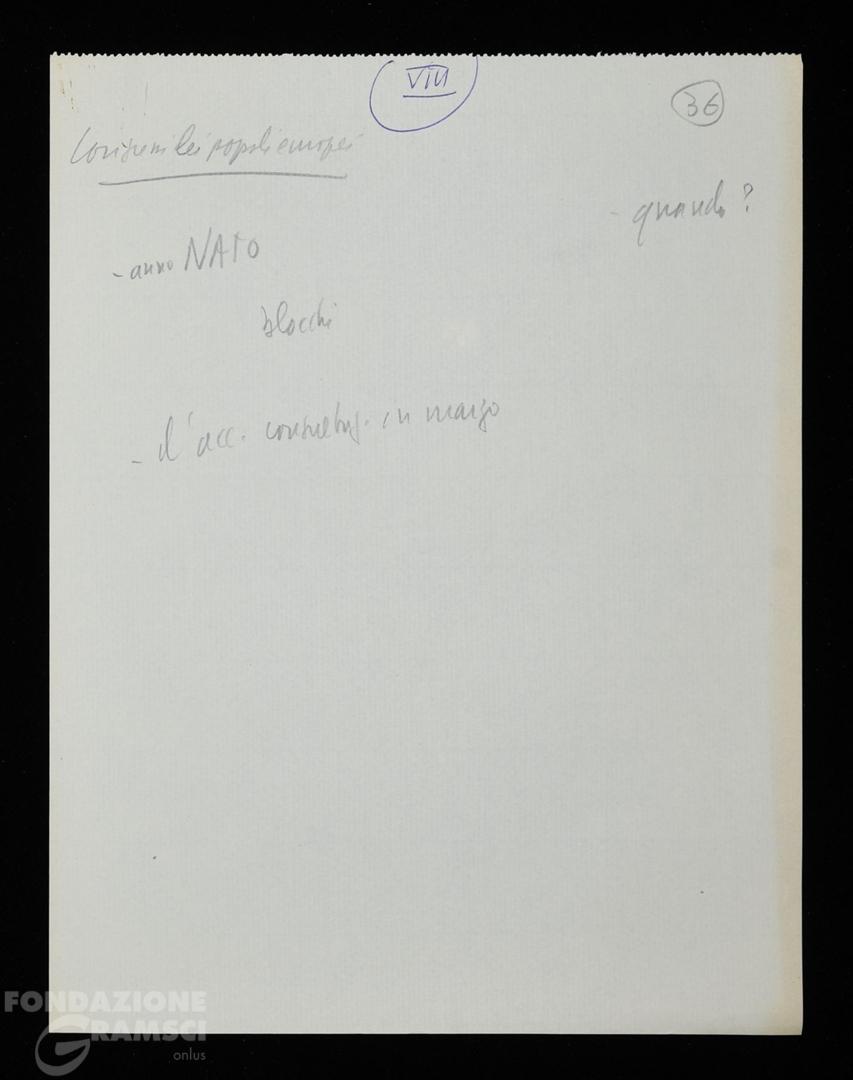 VIII
36
Congresso dei popoli europei
- quando?
- anno NATO
blocchi
- d'acc. consultaz. in marzo
FONDAZIONE
GRAMSCI
onlus